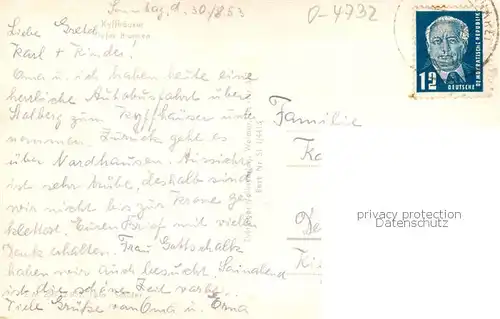 Sonntag, d. 30/8.53
0-4732
Kyffhäuser
Liebe Gretel,
Karl + Kinder!
Oma u. ich haben heute eine
herrliche Autobusfahrt über
Stolberg zum Kyffhäuser unter-
nommen. Zurück geht es
über Nordhausen. Aussicht
ist sehr trübe, deshalb sind
wir nicht bis zur Krone ge-
klettert. Euren Brief mit vielen
Dank erhalten. Frau Gottschalk
haben wir auch besucht.
ist die schöne Zeit vorbei.
Viele Grüße von Oma u. Erna
Familie
12
DEUTSCHE
DEMOKRATISCHE REPUBLIK
privacy protection
Datenschutz